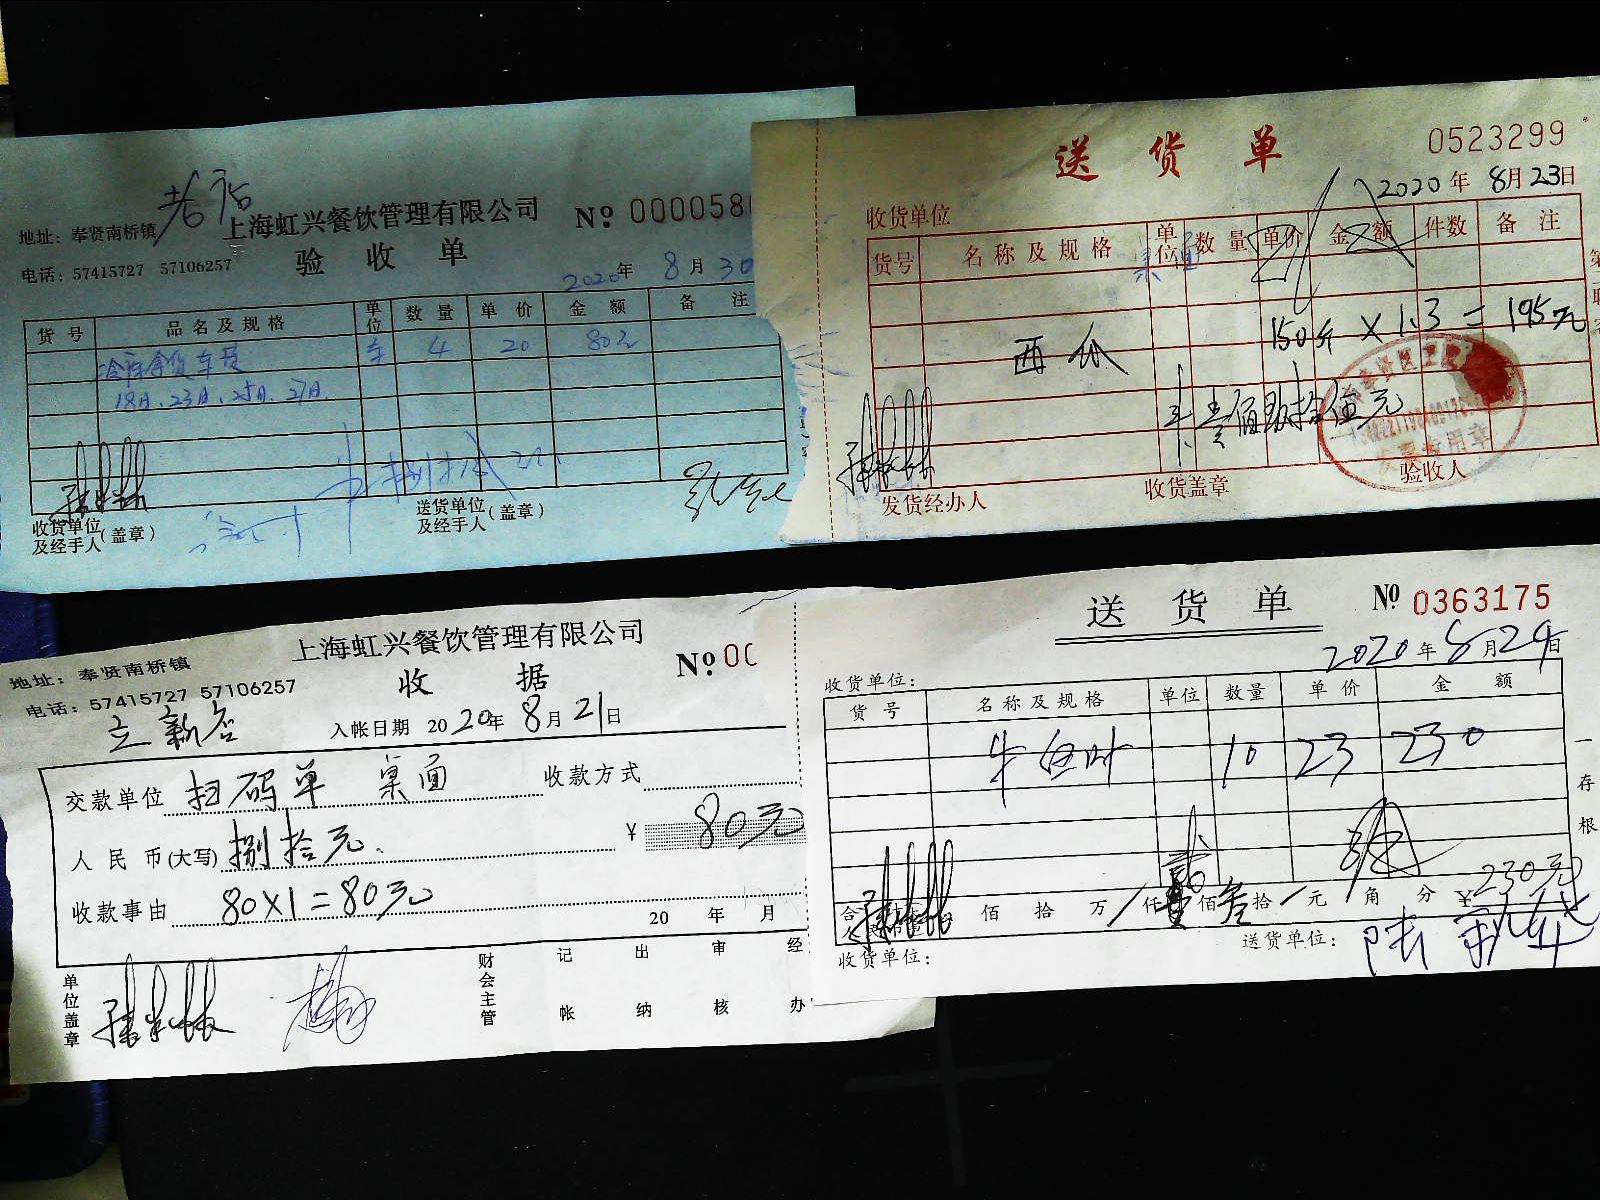 老店
上海虹兴餐饮管理有限公司
地址：奉贤南桥镇
电话：57415727 57106257
验收单
№ 000058
2020年 8月 30
货号 品名及规格 单位 数量 单价 金额 备注
冷库拿货车费 车 4 20 80元
18日、23日、25日、27日
收货单位及经手人（盖章）
送货单位及经手人（盖章）
送货单
0523299
2020年 8月 23日
收货单位
货号 名称及规格 单位 数量 单价 金额 件数 备注
西瓜 150斤 × 1.3 = 195元
壹佰玖拾伍元
发票专用章
发货经办人 收货盖章 验收人
上海虹兴餐饮管理有限公司
地址：奉贤南桥镇
电话：57415727 57106257
收据
№ 00
立新店
入帐日期 2020年 8月 21日
交款单位 扫码单 桌面 收款方式
人民币(大写) 捌拾元 ¥ 80元
收款事由 80×1=80元
20 年 月
单位盖章 财会主管 记帐 出纳 审核 经办
送货单
№ 0363175
2020年 8月 29日
收货单位：
货号 名称及规格 单位 数量 单价 金额
10 23 230
佰 拾 万 仟 贰 佰 叁 拾 元 角 分 ¥ 230元
收货单位：
送货单位：
一存根